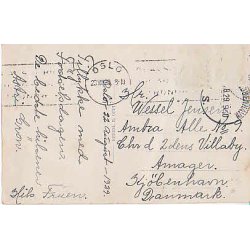 OSLO
Oslo 22 August - 1929.
Tillykke med
Fødselsdagen.
De bedste hilsener
Hils Fruen.
Hr.
Wessel Jensen
Ambra Alle N 3
Chr d 2dens Villaby
Amager.
Kjöbenhavn
Danmark.